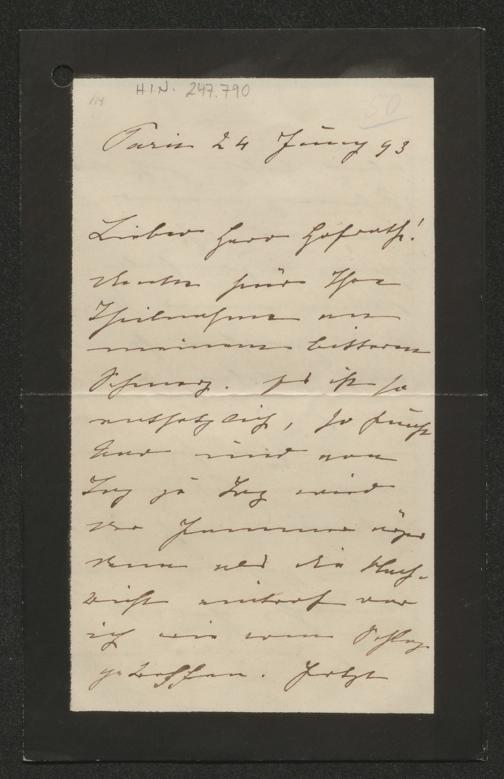 114
H.I.N. 247.790
50
Paris 24 Juny 93
Lieber Herr Hofrath!
danke für Ihre
Theilnahme an
meinem bitteren
Schmerz. Es ist so
entsetzlich, so furcht
bar und von
Tag zu Tag wird
der Jammer ärger
denn als die Nach-
richt eintraf war
ich wie vom Schlag
getroffen. Jetzt